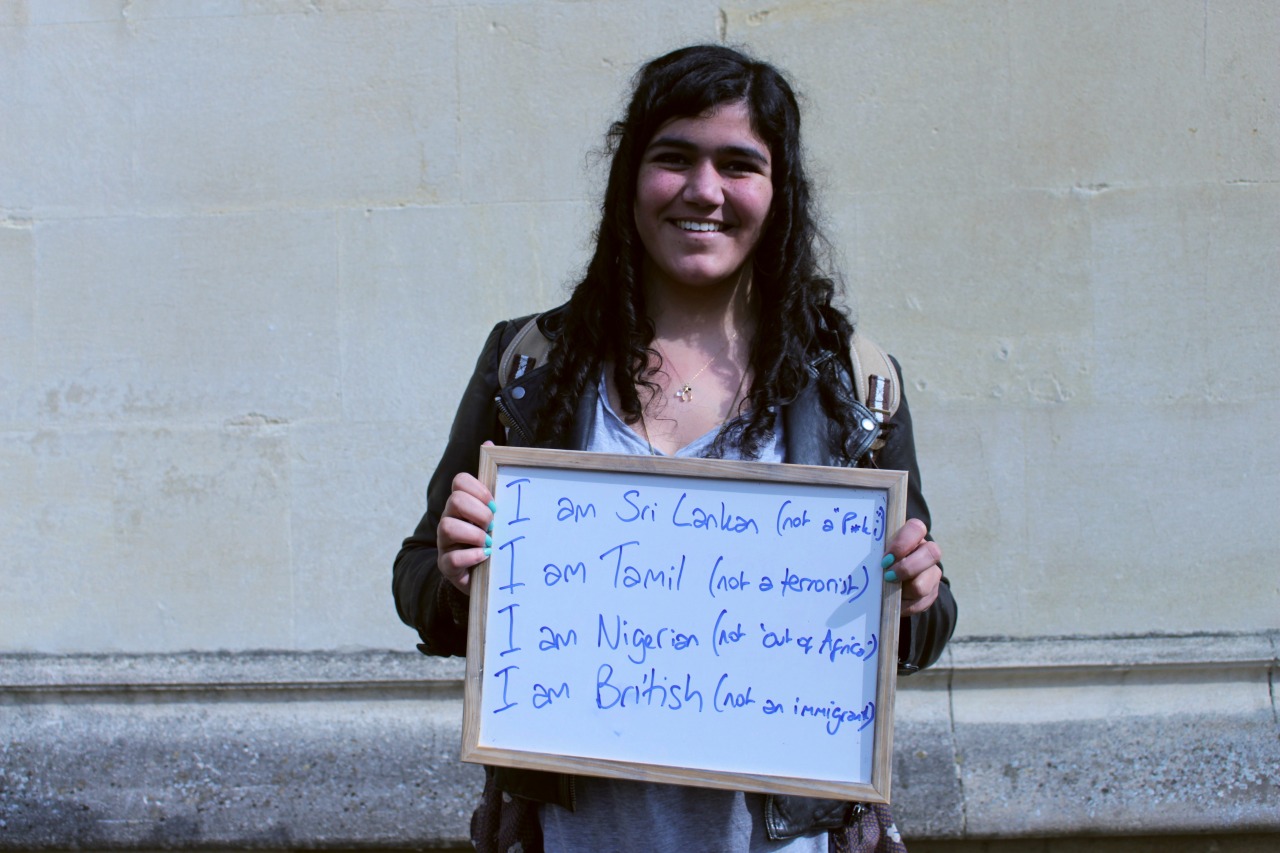 I am Sri Lankan (not a "P*ki")
I am Tamil (not a terrorist)
I am Nigerian (not 'out of Africa')
I am British (not an immigrant)